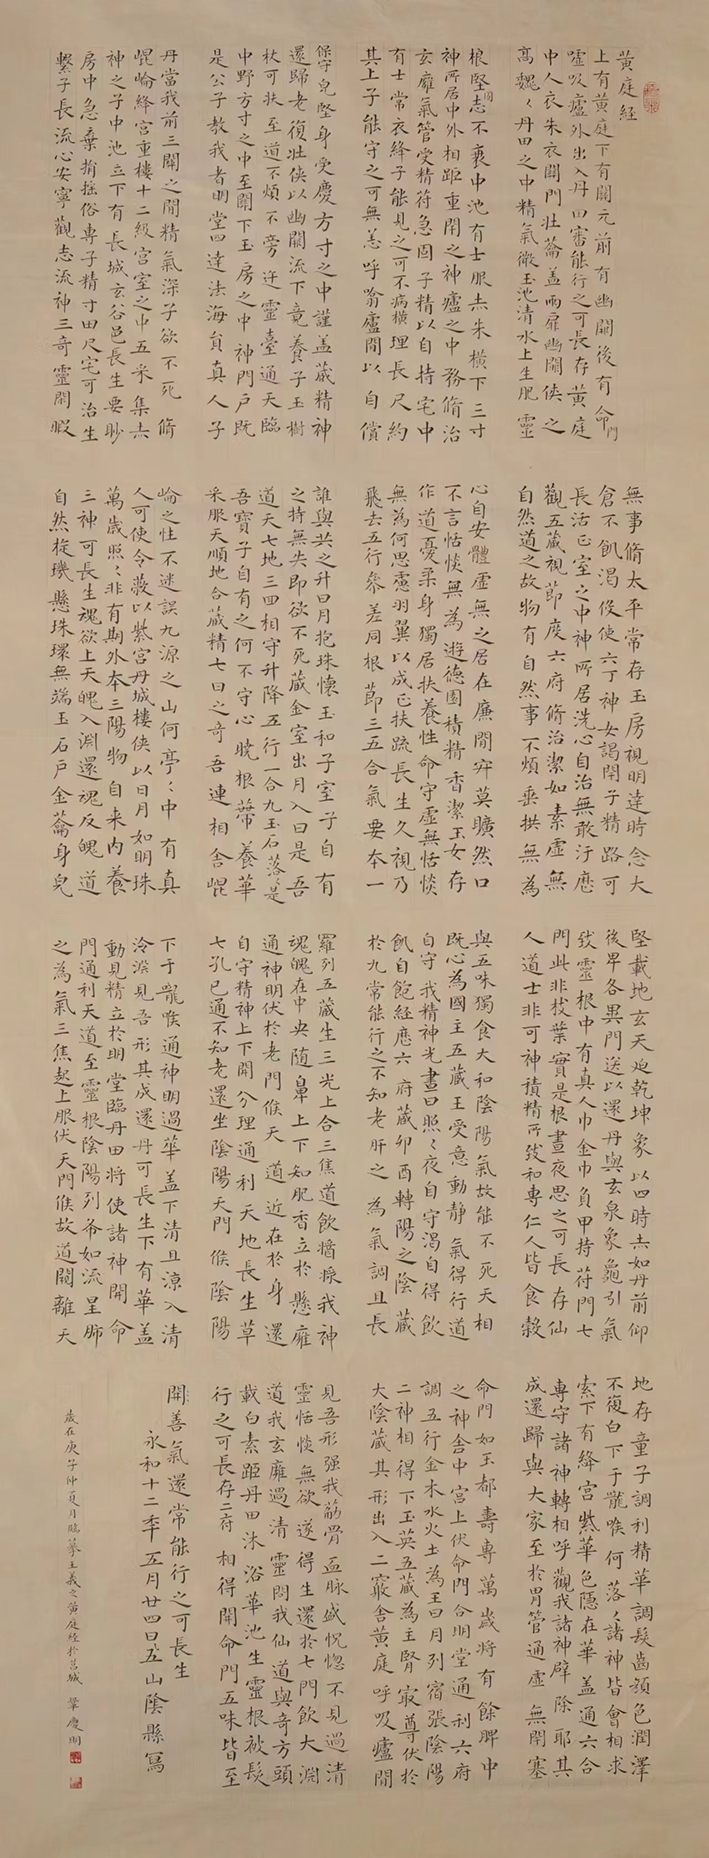 黃庭經
上有黃庭下有關元前有幽關後有命門
噓吸廬外出入丹田審能行之可長存黃庭
中人衣朱衣關門壯蘥蓋兩扉幽關俠之
高魏々丹田之中精氣微玉池清水上生肥靈
根堅志固不衰中池有士服赤朱橫下三寸
神所居中外相距重閉之神廬之中務脩治
玄廱氣管受精符急固子精以自持宅中
有士常衣絳子能見之可不病橫理長尺約
其上子能守之可無恙呼噏廬間以自償
保守皃堅身受慶方寸之中謹蓋藏精神
還歸老復壯俠以幽闕流下竟養子玉樹
杖可扶至道不煩不旁迕靈臺通天臨
中野方寸之中至關下玉房之中神門戶既
是公子教我者明堂四達法海員真人子
丹當我前三關之間精氣深子欲不死脩
崐崘絳宮重樓十二級宮室之中五采集赤
神之子中池立下有長城玄谷邑長生要眇
房中急棄捐搖俗專子精寸田尺宅可治生
繫子長流心安寧觀志流神三奇靈閑暇
無事脩太平常存玉房視明達時念大
倉不飢渴役使六丁神女謁閉子精路可
長活正室之中神所居洗心自治無敢汙歷
觀五藏視節度六府脩治潔如素虛無
自然道之故物有自然事不煩垂拱無為
心自安體虛無之居在廉間寂莫曠然口
不言恬惔無為遊德園積精香潔玉女存
作道憂柔身獨居扶養性命守虛無恬惔
無為何思慮羽翼以成正扶疏長生久視乃
飛去五行參差同根節三五合氣要本一
誰與共之升日月抱珠懷玉和子室子自有
之持無失即欲不死藏金室出月入日是吾
道天七地三回相守升降五行一合九玉石落々是
吾寶子自有之何不守心曉根蒂養華
采服天順地合藏精七日之奇吾連相舍崐
崘之性不迷誤九源之山何亭々中有真
人可使令蔽以紫宮丹城樓俠以日月如明珠
萬歲照々非有期外本三陽物自来内養
三神可長生魂欲上天魄入淵還魂反魄道
自然旋璣懸珠環無端玉石戶金蘥身皃
堅載地玄天迫乾坤象以四時赤如丹前仰
後卑各異門送以還丹與玄泉象龜引氣
致靈根中有真人巾金巾負甲持苻門七
門此非枝葉實是根晝夜思之可長存仙
人道士非可神積精所致和專仁人皆食穀
與五味獨食大和陰陽氣故能不死天相
既心為國主五藏王受意動靜氣得行道
自守我精神光晝日照々夜自守渴自得飲
飢自飽經歷六府藏卯酉轉陽之陰藏
於九常能行之不知老肝之為氣調且長
羅列五藏生三光上合三焦道飲醬漿我神
魂魄在中央随鼻上下知肥香立於懸廱
通神明伏於老門候天道近在於身還
自守精神上下開分理通利天地長生草
七孔已通不知老還坐陰陽天門候陰陽
下于嚨喉通神明過華蓋下清且涼入清
泠淵見吾形其成還丹可長生下有華蓋
動見精立於明堂臨丹田將使諸神開命
門通利天道至靈根陰陽列希如流星肺
之為氣三焦起上服伏天門候故道闚離天
地存童子調利精華調髮齒顏色潤澤
不復白下于嚨喉何落々諸神皆會相求
索下有絳宮紫華色隱在華蓋通六合
專守諸神轉相呼觀我諸神辟除耶其
成還歸與大家至於胃管通虛無閉塞
命門如玉都壽專萬歲將有餘脾中
之神舍中宮上伏命門合明堂通利六府
調五行金木水火土為王日月列宿張陰陽
二神相得下玉英五藏為主腎寂尊伏於
大陰藏其形出入二竅舍黃庭呼吸廬間
見吾形强我筋骨血脉盛怳惚不見過清
靈恬惔無欲遂得生還於七門飲大淵
道我玄廱過清靈問我仙道與奇方頭
載白素距丹田沐浴華池生靈根被髮
行之可長存二府相得開命門五味皆至
開善氣還常能行之可長生
永和十二年五月廿四日五山陰縣寫
歲在庚子仲夏月臨摹王羲之黃庭經於莒城 肇慶明